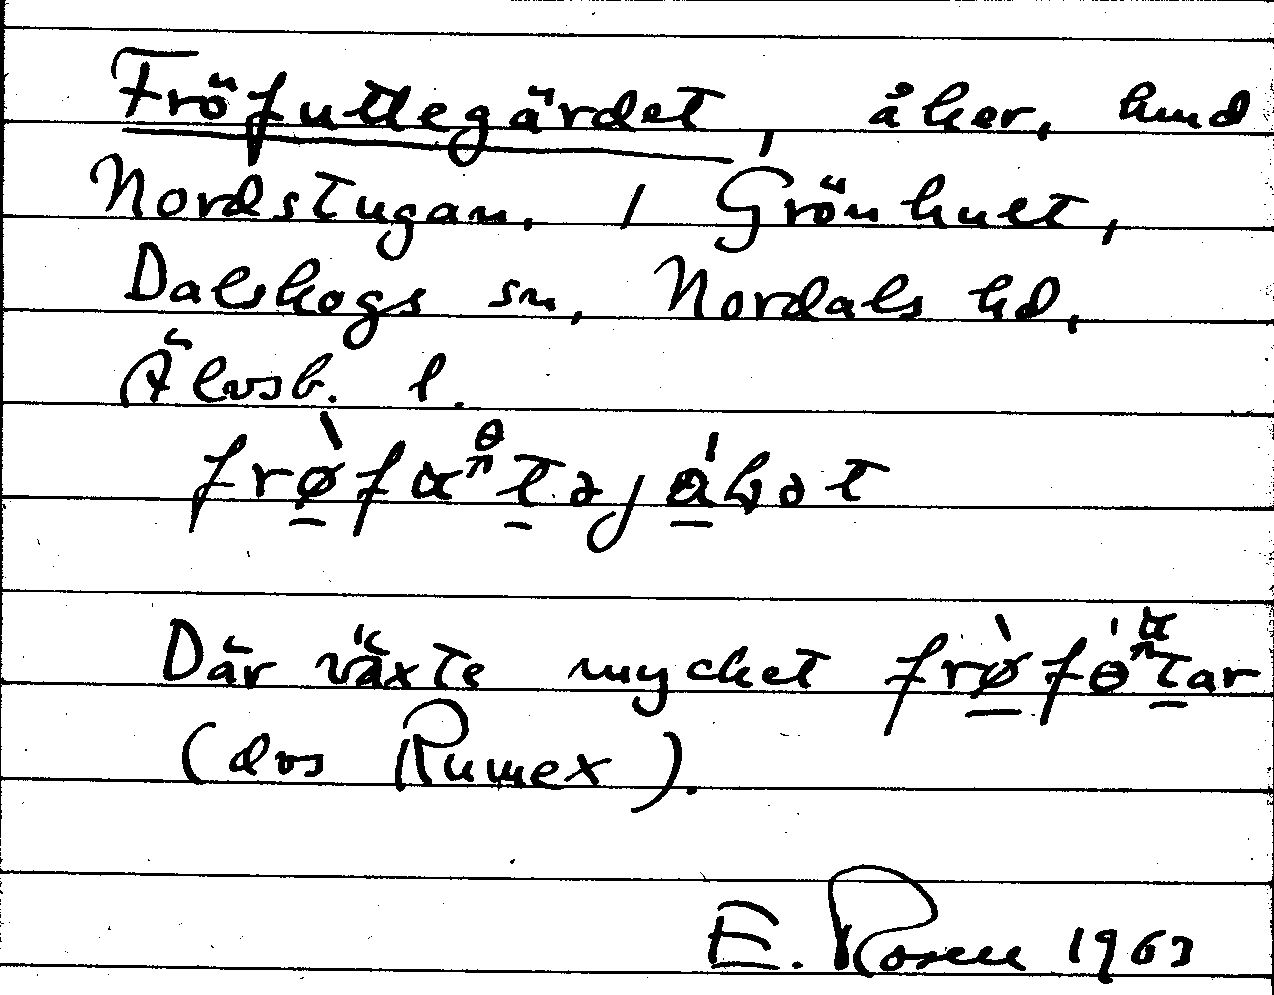 Fröfuttegärdet, åker, hmd
Nordstugan, 1 Grönhult,
Dalskogs sn, Nordals hd,
Älvsb. l.
Där växte mycket
(dvs Rumex).
E. Rosen 1963